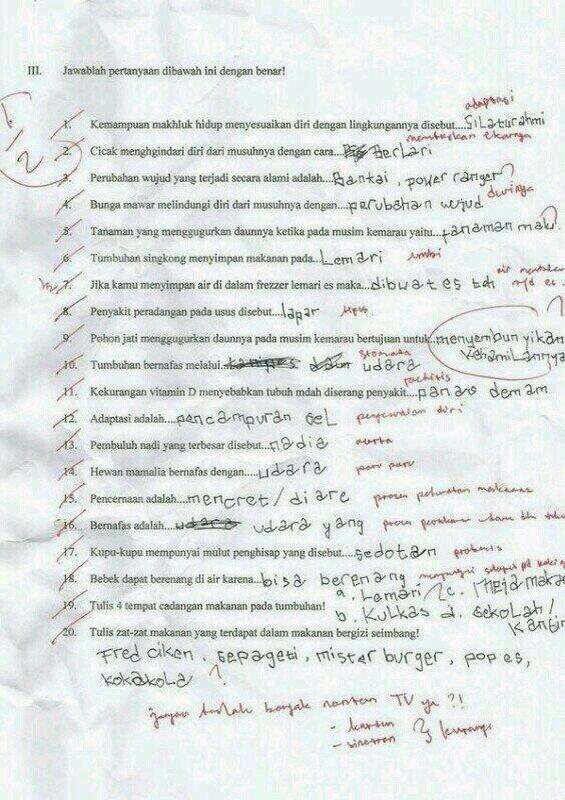 III. Jawablah pertanyaan dibawah ini dengan benar!
adaptasi
1. Kemampuan makhluk hidup menyesuaikan diri dengan lingkungannya disebut....Silaturahmi
memutuskan ekornya
2. Cicak menghgindari diri dari musuhnya dengan cara... Berlari
3. Perubahan wujud yang terjadi secara alami adalah....Bantai, power ranger?
durinya
4. Bunga mawar melindungi diri dari musuhnya dengan....perubahan wujud
5. Tanaman yang menggugurkan daunnya ketika pada musim kemarau yaitu....tanaman mati.
6. Tumbuhan singkong menyimpan makanan pada...Lemari umbi
air
7. Jika kamu menyimpan air di dalam frezzer lemari es maka...dibwat es teh mjd es.
8. Penyakit peradangan pada usus disebut....lapar tipus
9. Pohon jati menggugurkan daunnya pada musim kemarau bertujuan untuk..menyembunyikan kehamilannya
stomata
10. Tumbuhan bernafas melalui... udara
rachitis
11. Kekurangan vitamin D menyebabkan tubuh mdah diserang penyakit...panas demam
12. Adaptasi adalah....pencampuran sel penyesuaian diri
13. Pembuluh nadi yang terbesar disebut...nadia aorta
14. Hewan mamalia bernafas dengan.....udara paru paru
15. Pencernaan adalah....mencret/diare proses makanan
16. Bernafas adalah.... udara yang proses
17. Kupu-kupu mempunyai mulut penghisap yang disebut....sedotan probosis
18. Bebek dapat berenang di air karena...bisa berenang mempunyai selaput
a. Lemari c. Meja makan
19. Tulis 4 tempat cadangan makanan pada tumbuhan!
b. Kulkas d. sekolah/ kantin
20. Tulis zat-zat makanan yang terdapat dalam makanan bergizi seimbang!
Fred ciken, sepageti, mister burger, pop es,
kokakola ?
jangan banyak nonton TV ya ?!
- kartun
- sinetron kurangi